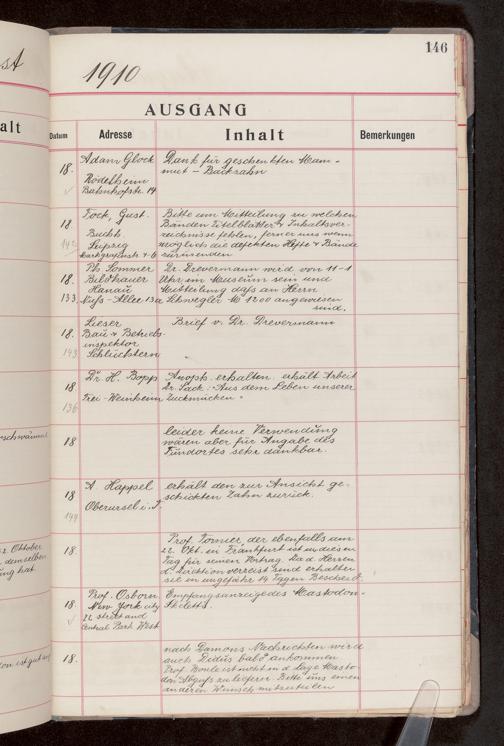 st
146
1910
AUSGANG
alt
Datum
Adresse
Inhalt
Bemerkungen
18. Adam Glock
Rödelheim
Bahnhofstr. 14
Dank für geschenkten Mam-
mut - Backzahn
18. Fock, Gust.
Buchh
Leipzig
Markgrafenstr. 4-6
Bitte um Mitteilung zu welchen
Bänden Titelblätter & Inhaltsver-
zeichnisse fehlen, ferner uns wenn
möglich die defekten Hefte & Bände
zurücksenden
18. Ph. Sommer
Bildhauer
Hanau
133. Nuss-Allee 13a
Dr. Drevermann wird von 11-1
Uhr im Museum sein und
Mitteilung dass an Herrn
Schwegler M 1200 angewiesen
sind.
18. Lieser
Bau & Betriebs-
inspektor
143 Schlüchtern
Brief v. Dr. Drevermann
18 Dr. H. Bopp
136
Frei-Weinheim
Anoph. erhalten. erhält Arbeit
Dr. Sack: "Aus dem Leben unserer
Zuckmücken"
18
leider keine Verwendung
wären aber für Angabe des
Fundortes sehr dankbar.
18 A Happel
Oberursel i. T.
149
erhält den zur Ansicht ge-
schickten Zahn zurück.
18.
Prof. Tornier, der ebenfalls am
22. Okt. in Frankfurt ist an diesem
Tag für seinen Vortrag. Da d. Herren
d. Direktion verreist sind erhalten
sie in ungefähr 14 Tagen Bescheid.
18 Prof. Osborn
New York city
22 street and
Central Park West
Empfangsanzeige des Mastodon-
Skeletts.
18.
nach Damons Nachrichten wird
auch Dedus babo ankommen
Prof. Boule ist nicht in d. Lage Masto
don Abguss zu liefern. Bitte uns einen
anderen Wunsch mitzuteilen
22. Ottober
demselben
ung hat